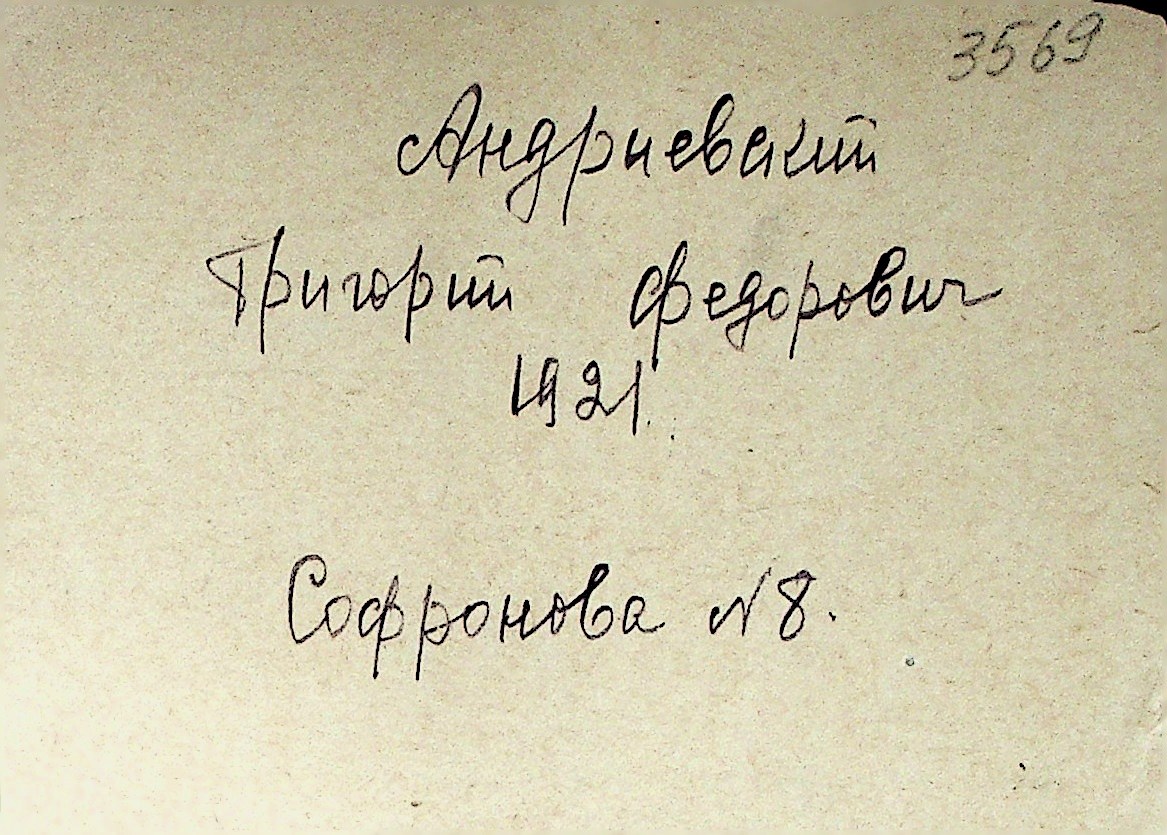 3569
Андриевский
Григорий Федорович
1921.
Софронова N8.